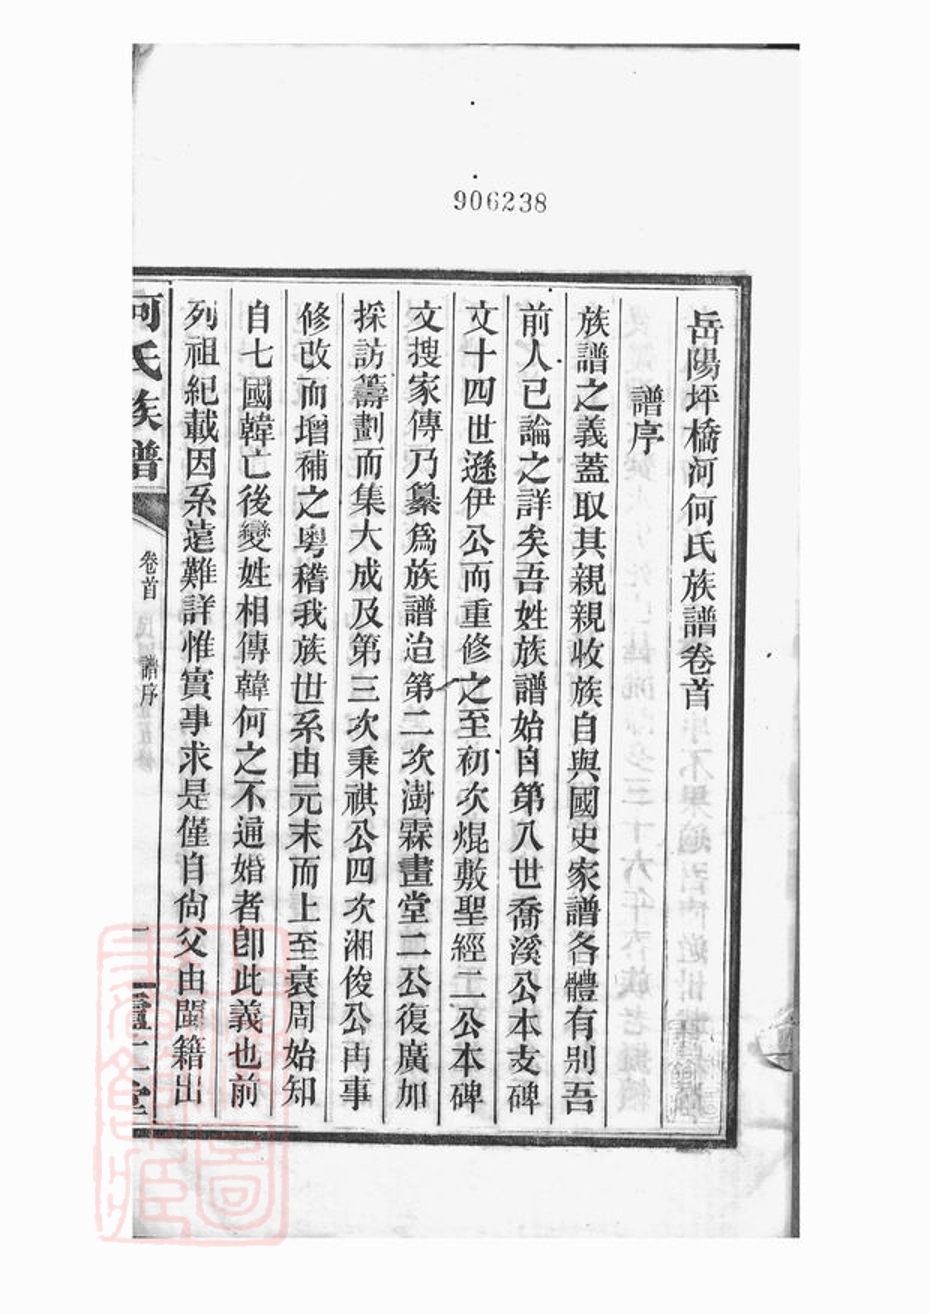 906238
岳陽坪橋河何氏族譜卷首
譜序
族譜之義蓋取其親親收族自與國史家譜各體有別吾
前人已論之詳矣吾姓族譜始自第八世喬溪公本支碑
文十四世遜伊公而重修之至初次焜敷聖經二公本碑
文搜家傳乃纂爲族譜迨第二次澍霖畫堂二公復廣加
採訪籌劃而集大成及第三次秉祺公四次湘俊公再事
修改而增補之粤稽我族世系由元末而上至衰周始知
自七國韓亡後變姓相傳韓何之不通婚者卽此義也前
列祖紀載因系遠難詳惟實事求是僅自尙父由閩籍出
何氏族譜
卷首
譜序
一